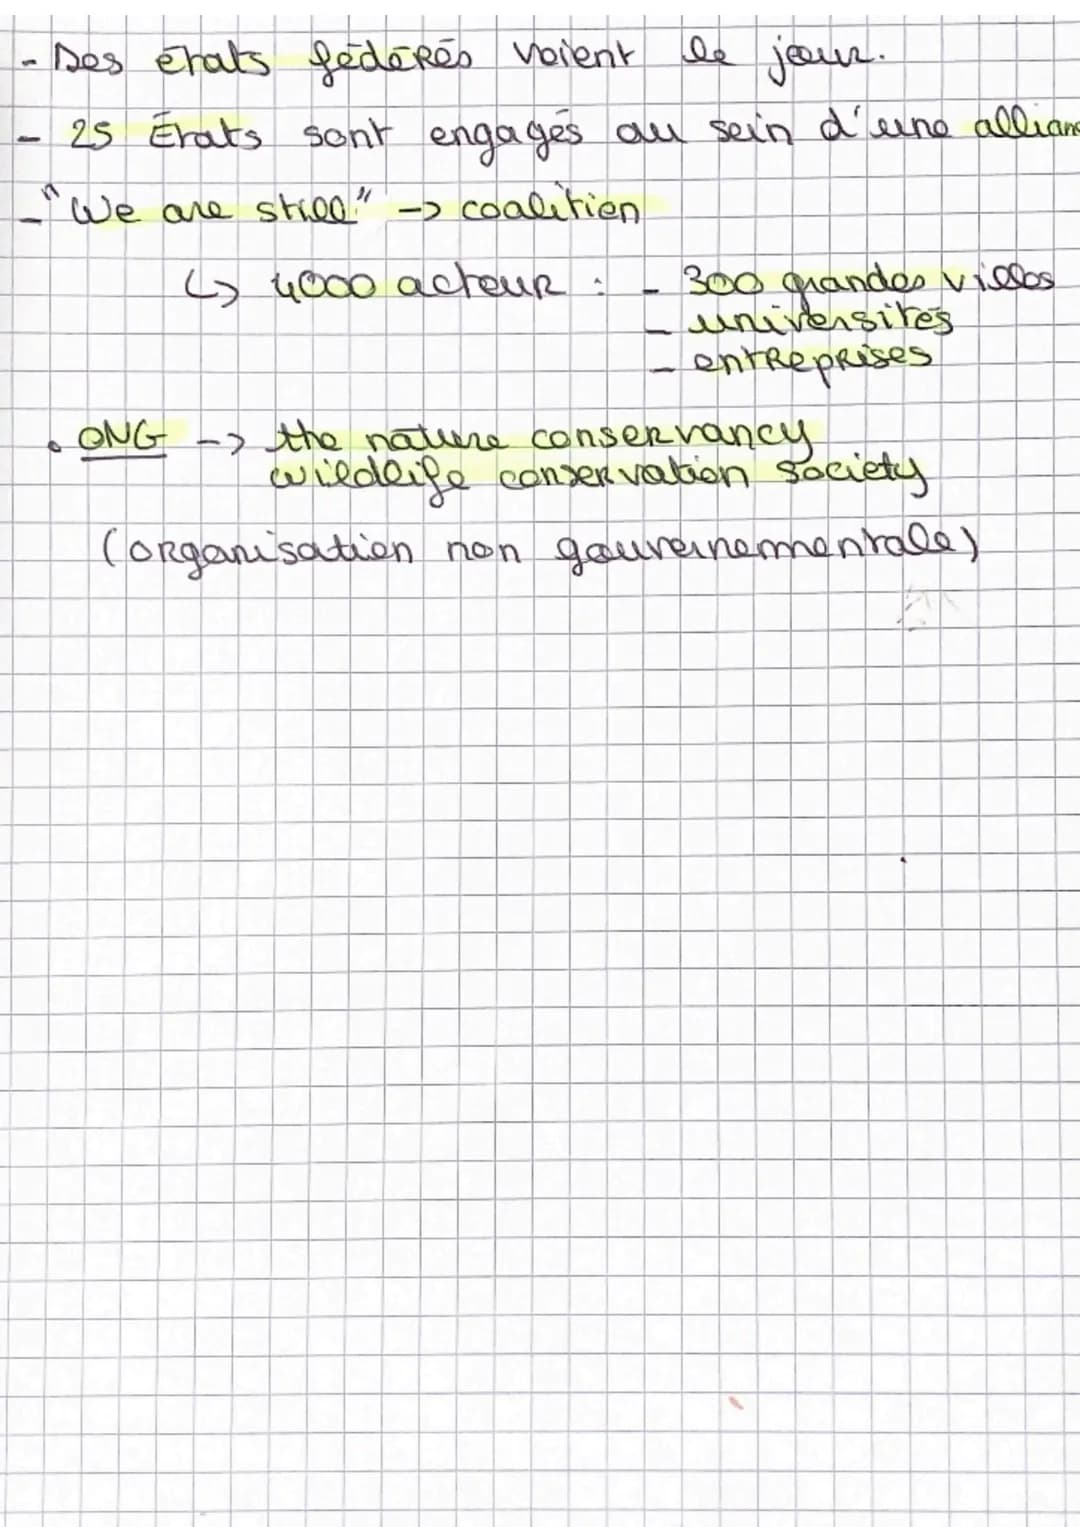 - Des états fédérés voient le jour.
- 25 États sont engagés au sein d'une allianc
- "We are still" -> coalition
↳ 4000 acteur : - 300 grandes villes
- universités
- entreprises
• ONG -> the nature conservancy
wildlife conservation society
(organisation non gouvernementale)